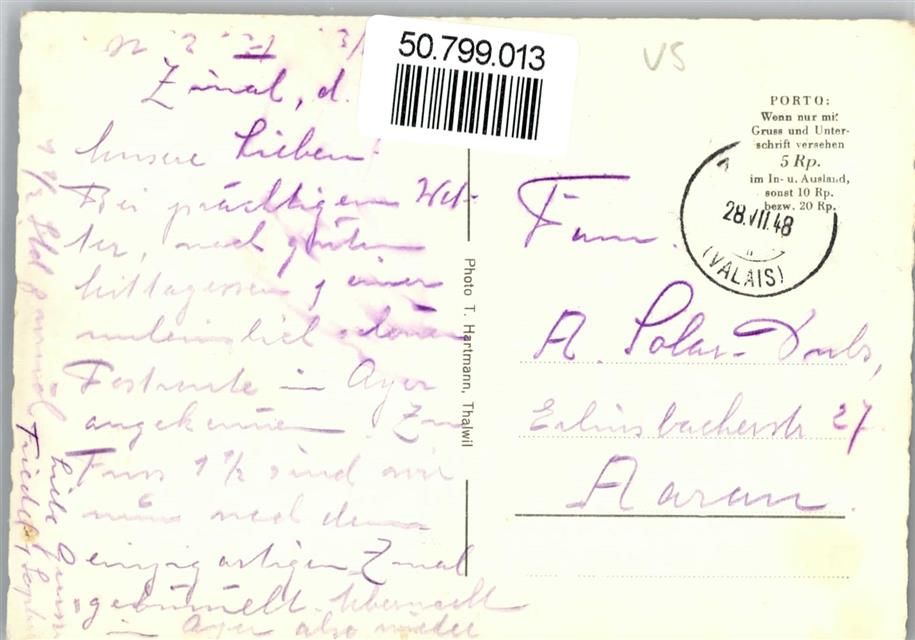 50.799.013
VS
Zinal, d.
Unsere Lieben
Bei prächtigem Wet-
ter, nach gutem
Mittagessen, einer
schönen
Postroute in Ayer
angekommen. Zu
Fuss 1 1/2 sind wir
nun nach dem
einzigartigen Zinal
gebummelt. Übernacht
in Ayer also wieder
1 1/2 Std
Liebe Grüsse
Photo T. Hartmann, Thalwil
PORTO:
Wenn nur mit
Gruss und Unter-
schrift versehen
5 Rp.
im In- u. Ausland,
sonst 10 Rp.
bezw. 20 Rp.
28.VII.48
(VALAIS)
Fam.
A.
Erlinsbacherstr 27
Aarau.